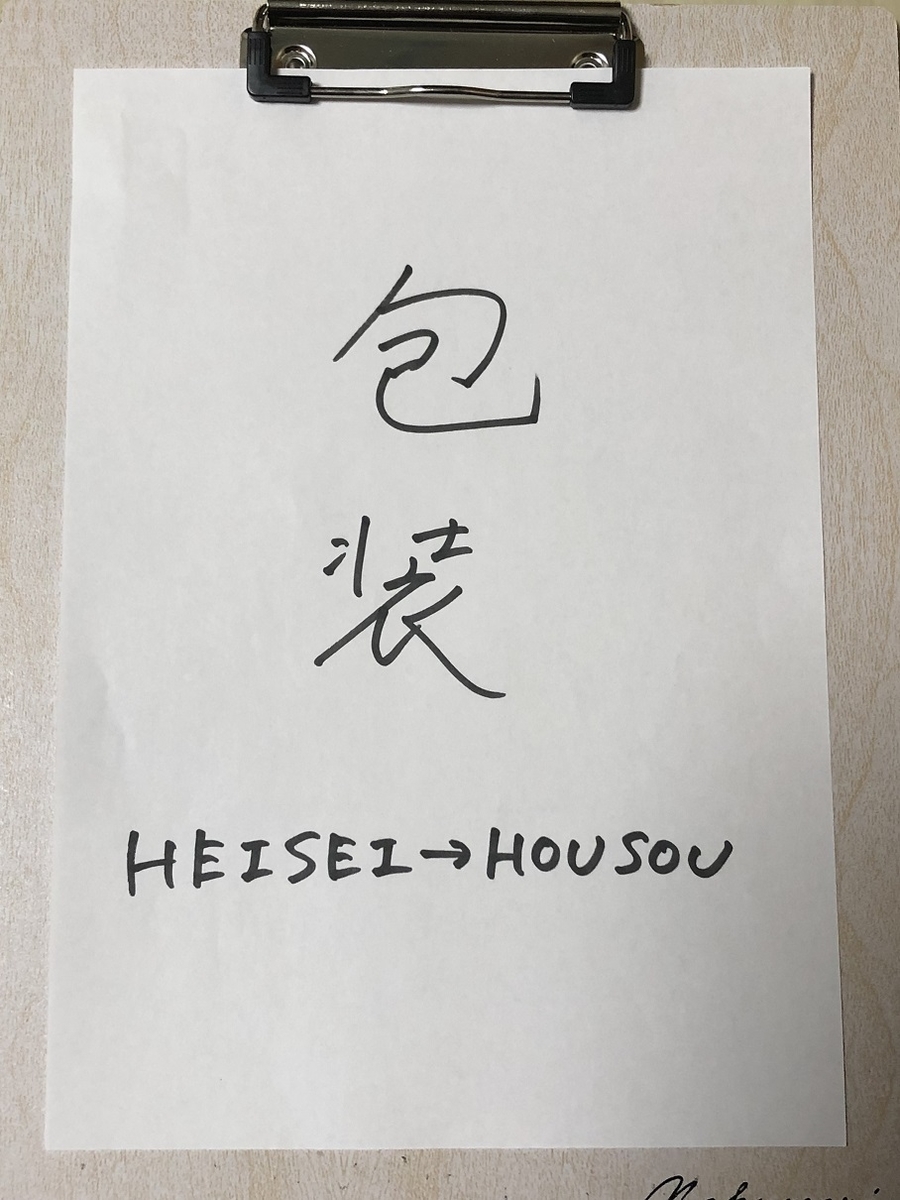 包
装
HEISEI→HOUSOU